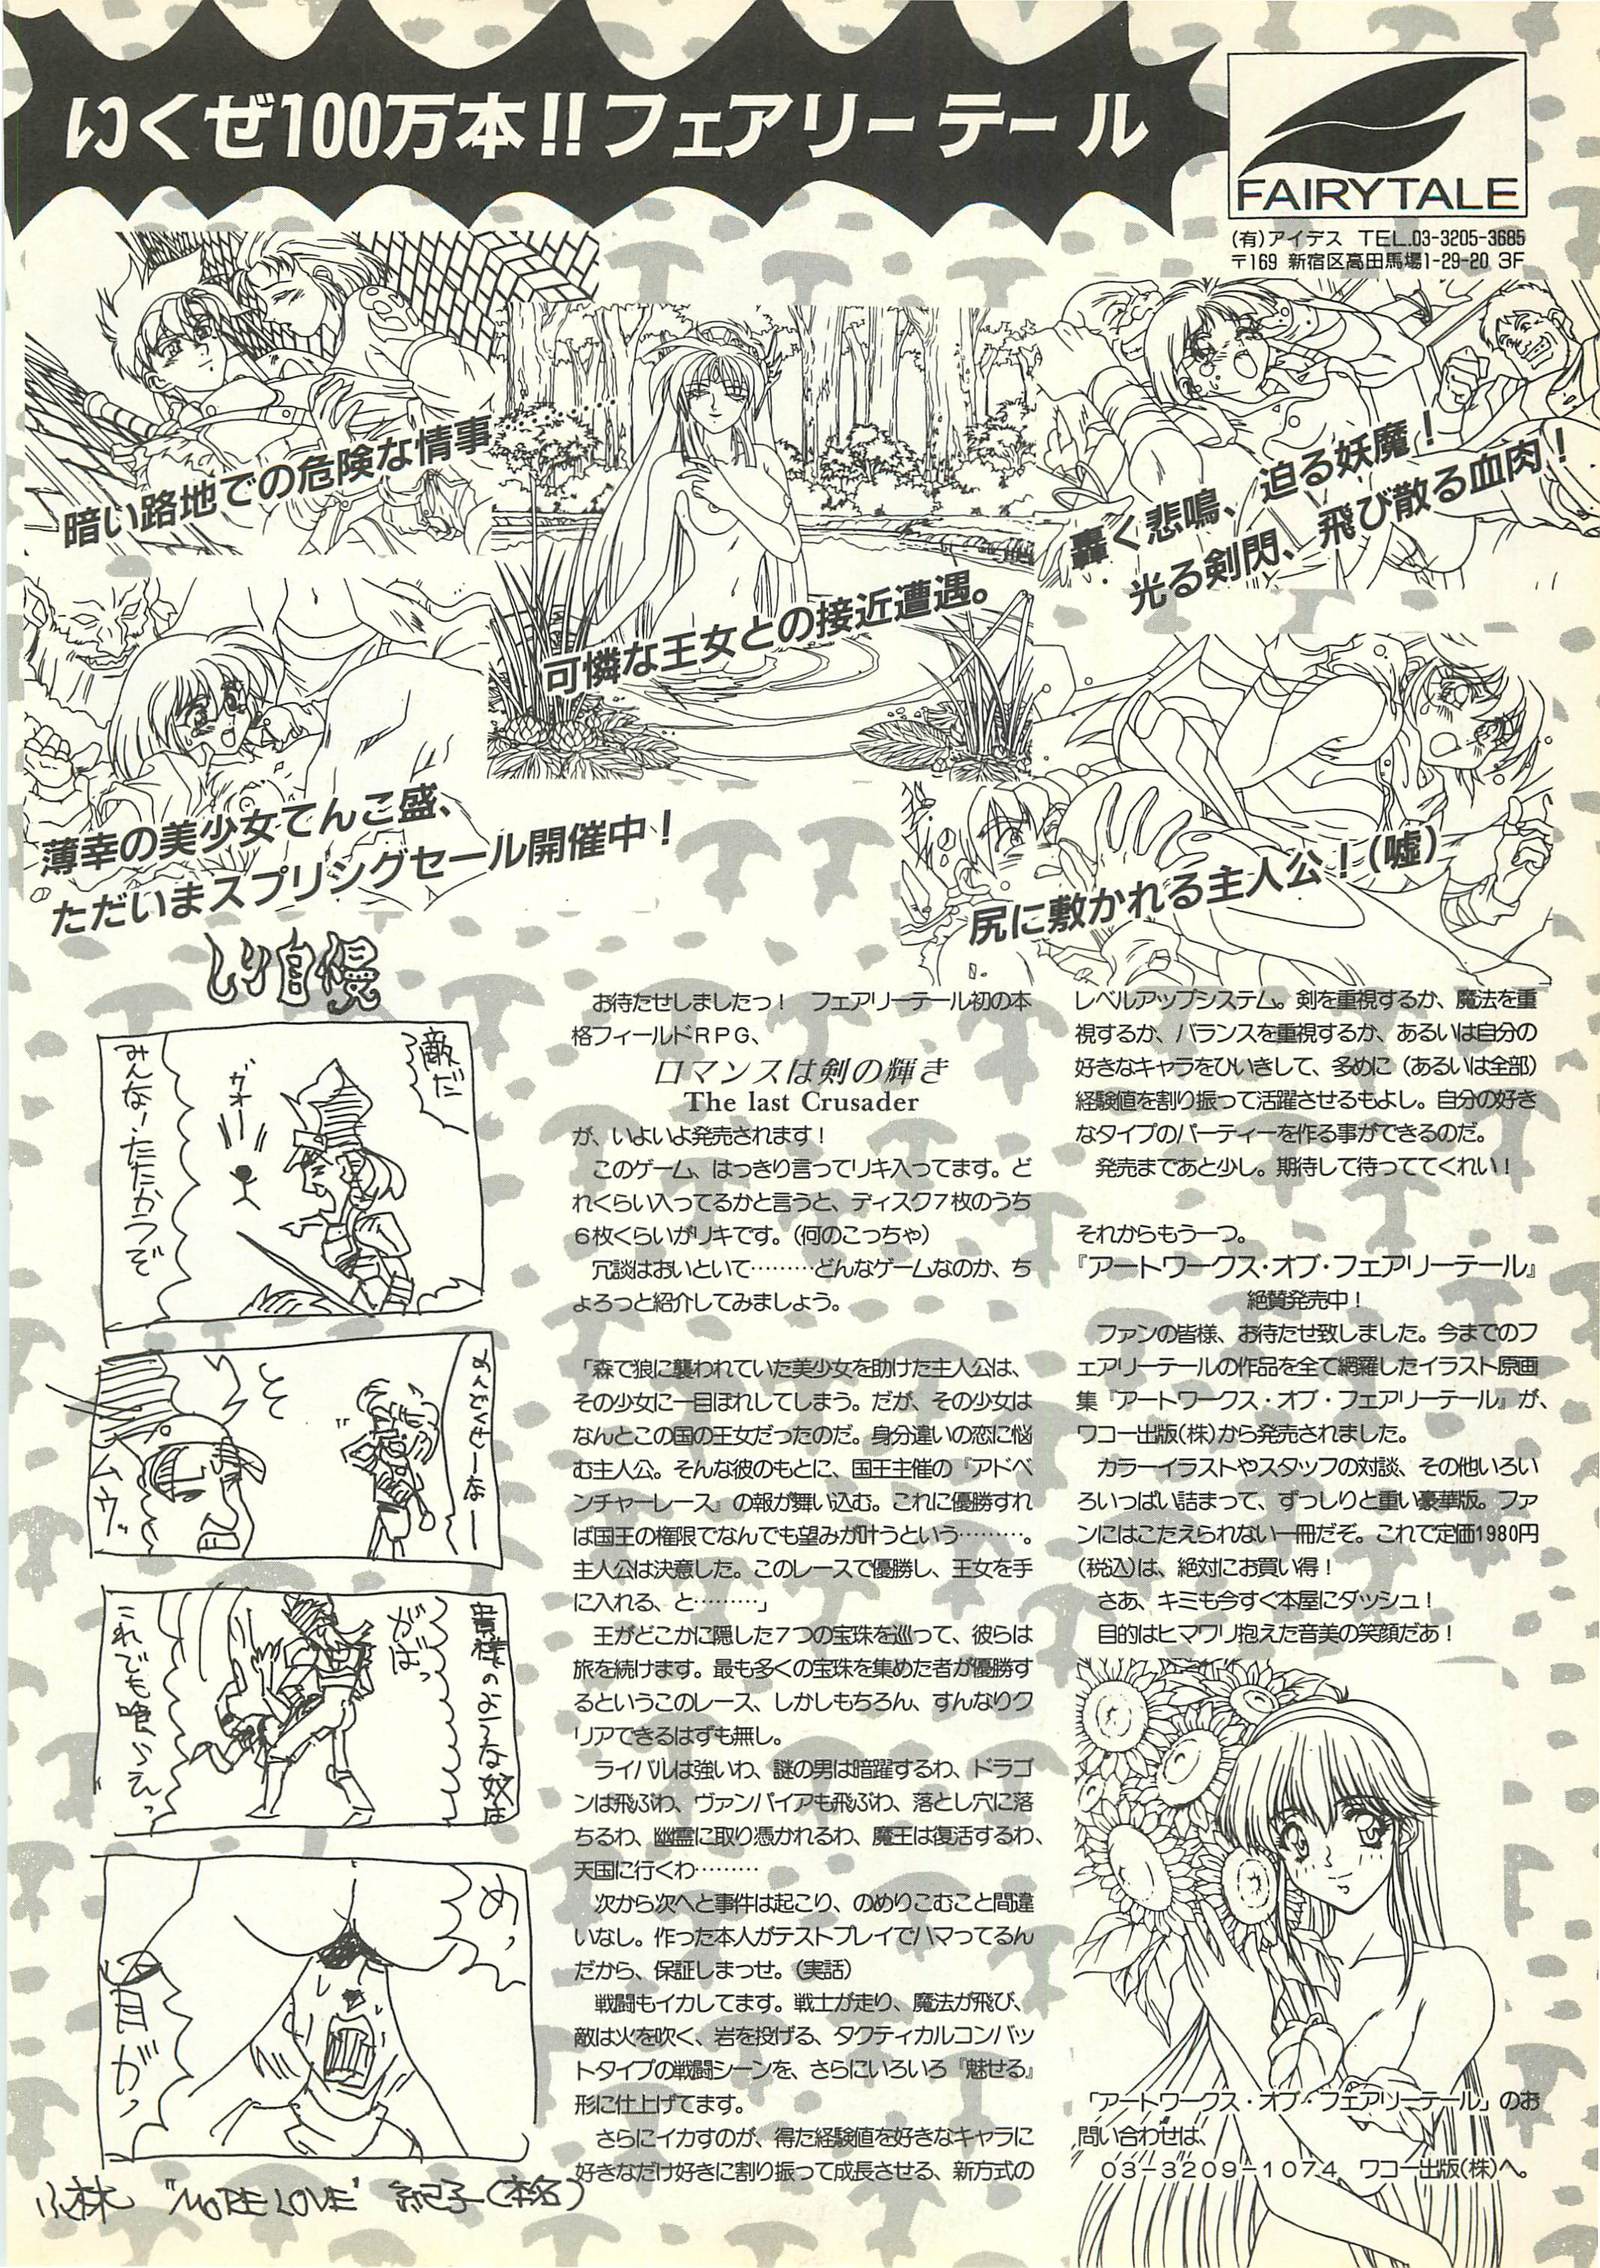 いくぜ100万本!!フェアリーテール
FAIRYTALE
(有)アイデス TEL.03-3205-3685
〒169 新宿区高田馬場1-29-20 3F
暗い路地での危険な情事
可憐な王女との接近遭遇。
轟く悲鳴、迫る妖魔！
光る剣閃、飛び散る血肉！
薄幸の美少女てんこ盛、
ただいまスプリングセール開催中！
尻に敷かれる主人公！(嘘)
しり自慢
敵だ
ガオー
みんなー、たたかうぞ
めんどくせーなー
そ
ムウッ
貴様のような奴は
がばっ
これでも喰らえっ
めっ
目がっ
小林 "MORE LOVE" 紀子(本名)
お待たせしましたっ！ フェアリーテール初の本
格フィールドRPG、
ロマンスは剣の輝き
The last Crusader
が、いよいよ発売されます！
このゲーム、はっきり言ってリキ入ってます。ど
れくらい入ってるかと言うと、ディスク７枚のうち
６枚くらいがリキです。(何のこっちゃ)
冗談はおいといて………どんなゲームなのか、ち
ょろっと紹介してみましょう。
「森で狼に襲われていた美少女を助けた主人公は、
その少女に一目ぼれしてしまう。だが、その少女は
なんとこの国の王女だったのだ。身分違いの恋に悩
む主人公。そんな彼のもとに、国王主催の『アドベ
ンチャーレース』の報が舞い込む。これに優勝すれ
ば国王の権限でなんでも望みが叶うという………。
主人公は決意した。このレースで優勝し、王女を手
に入れる、と………」
王がどこかに隠した７つの宝珠を巡って、彼らは
旅を続けます。最も多くの宝珠を集めた者が優勝す
るというこのレース、しかしもちろん、すんなりク
リアできるはずも無し。
ライバルは強いわ、謎の男は暗躍するわ、ドラゴ
ンは飛ぶわ、ヴァンパイアも飛ぶわ、落とし穴に落
ちるわ、幽霊に取り憑かれるわ、魔王は復活するわ、
天国に行くわ………
次から次へと事件は起こり、のめりこむこと間違
いなし。作った本人がテストプレイでハマってるん
だから、保証しまっせ。(実話)
戦闘もイカしてます。戦士が走り、魔法が飛び、
敵は火を吹く、岩を投げる、タクティカルコンバッ
トタイプの戦闘シーンを、さらにいろいろ『魅せる』
形に仕上げてます。
さらにイカすのが、得た経験値を好きなキャラに
好きなだけ好きに割り振って成長させる、新方式の
レベルアップシステム。剣を重視するか、魔法を重
視するか、バランスを重視するか、あるいは自分の
好きなキャラをひいきして、多めに（あるいは全部）
経験値を割り振って活躍させるもよし。自分の好き
なタイプのパーティーを作る事ができるのだ。
発売まであと少し。期待して待っててくれい！
それからもう一つ。
『アートワークス・オブ・フェアリーテール』
絶賛発売中！
ファンの皆様、お待たせ致しました。今までのフ
ェアリーテールの作品を全て網羅したイラスト原画
集『アートワークス・オブ・フェアリーテール』が、
ワコー出版(株)から発売されました。
カラーイラストやスタッフの対談、その他いろい
ろいっぱい詰まって、ずっしりと重い豪華版。ファ
ンにはこたえられない一冊だぞ。これで定価1980円
(税込)は、絶対にお買い得！
さあ、キミも今すぐ本屋にダッシュ！
目的はヒマワリ抱えた音美の笑顔だあ！
「アートワークス・オブ・フェアリーテール」のお
問い合わせは、
03-3209-1074 ワコー出版(株)へ。